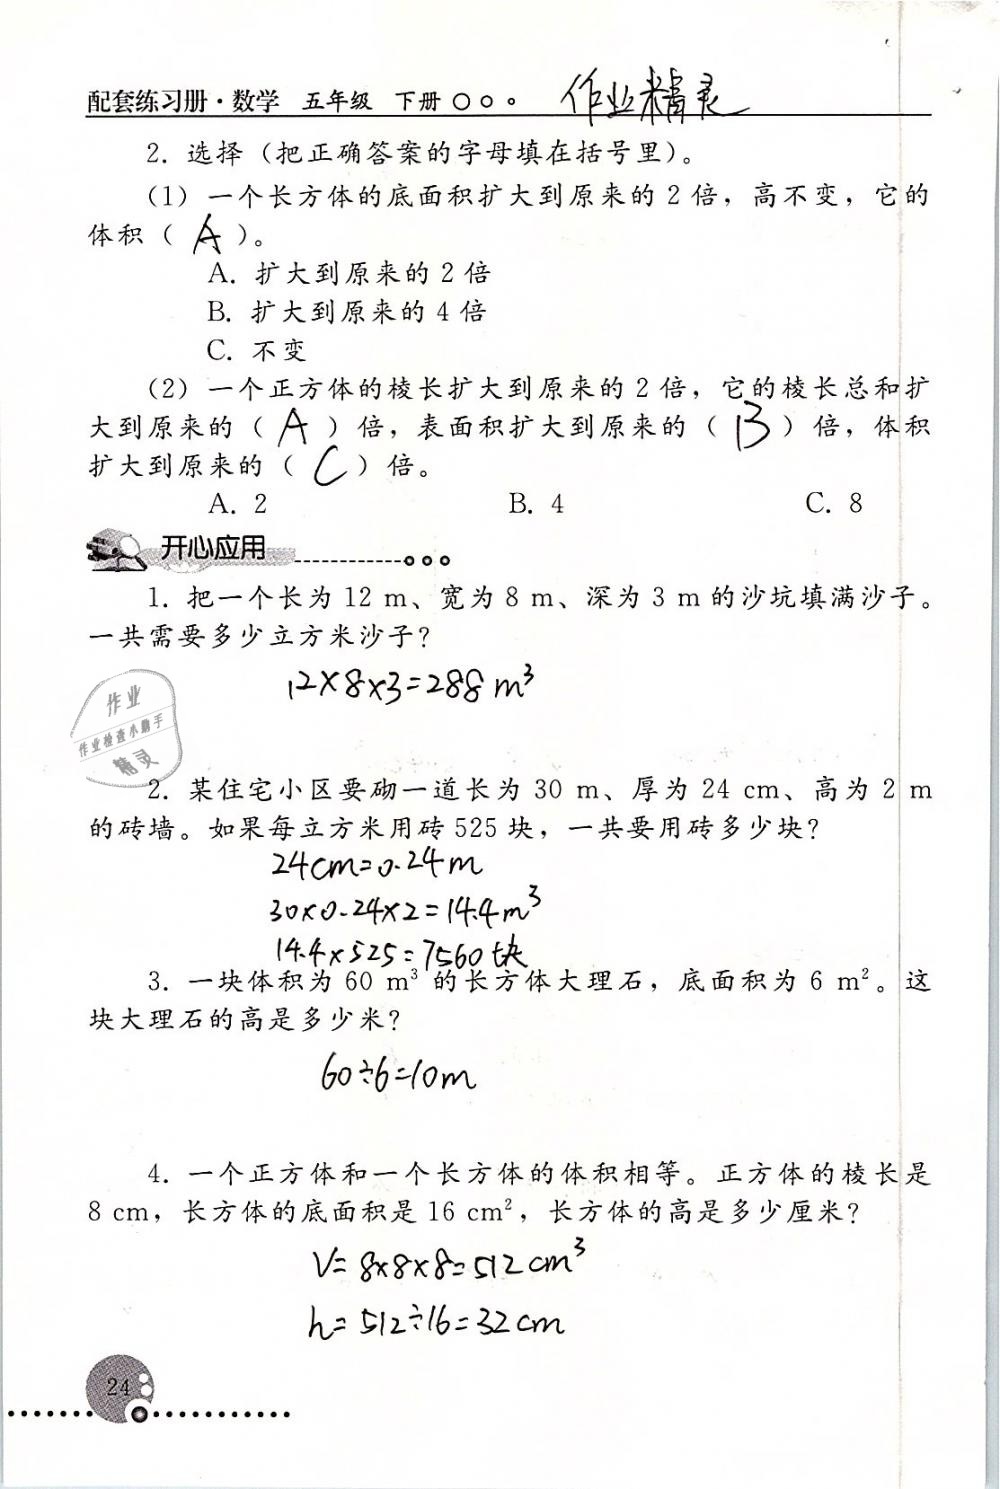 配套练习册·数学 五年级 下册 作业精灵
2. 选择（把正确答案的字母填在括号里）。
（1）一个长方体的底面积扩大到原来的 2 倍，高不变，它的
体积（ A ）。
A. 扩大到原来的 2 倍
B. 扩大到原来的 4 倍
C. 不变
（2）一个正方体的棱长扩大到原来的 2 倍，它的棱长总和扩
大到原来的（ A ）倍，表面积扩大到原来的（ B ）倍，体积
扩大到原来的（ C ）倍。
A. 2 B. 4 C. 8
开心应用
1. 把一个长为 12 m、宽为 8 m、深为 3 m 的沙坑填满沙子。
一共需要多少立方米沙子？
12×8×3=288 m³
作业
作业检查小助手
精灵
2. 某住宅小区要砌一道长为 30 m、厚为 24 cm、高为 2 m
的砖墙。如果每立方米用砖 525 块，一共要用砖多少块？
24cm=0.24m
30×0.24×2=14.4m³
14.4×525=7560块
3. 一块体积为 60 m³ 的长方体大理石，底面积为 6 m²。这
块大理石的高是多少米？
60÷6=10m
4. 一个正方体和一个长方体的体积相等。正方体的棱长是
8 cm，长方体的底面积是 16 cm²，长方体的高是多少厘米？
V=8×8×8=512cm³
h=512÷16=32cm
24